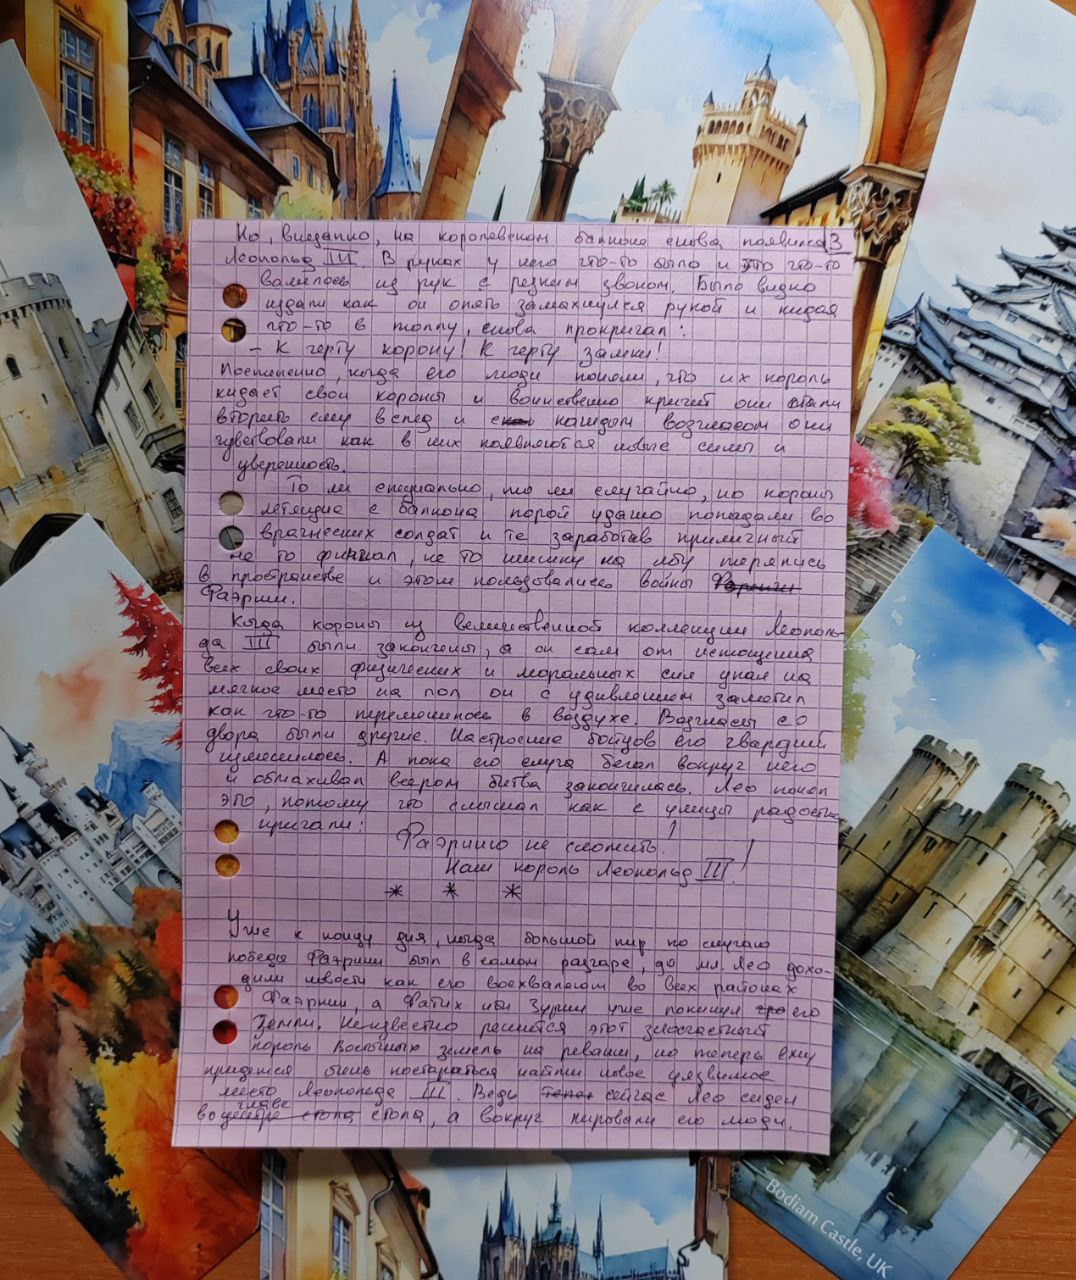 Но, внезапно, на королевском балконе снова появился 3
Леопольд III. В руках у него что-то было и это что-то
валилось из рук с резким звоном. Было видно
издали как он опять замахнулся рукой и кидая
что-то в толпу, снова прокричал:
- К черту корону! К черту замки!
Постепенно, когда его люди поняли, что их король
кидает свои короны и воинственно кричит они стали
вторить ему вслед и с каждым возгласом они
чувствовали как в них появляются новые силы и
уверенность.
То ли специально, то ли случайно, но короны
летящие с балкона порой удачно попадали во
врагнеских солдат и те заработав приличный
не то фингал, не то шишку на лбу терялись
в пространстве и этом пользовались войны
Фаэрии.
Когда короны из величественной коллекции Леополь-
да III были закончены, а он сам от истощения
всех своих физических и моральных сил упал на
мягкое место на пол он с удивлением заметил
как что-то переменилось в воздухе. Возгласы со
двора были другие. Настроение бойцов его гвардии
изменилось. А пока его слуга бегал вокруг него
и обмахивал веером битва закончилась. Лео понял
это, потому что слышал как с улицы радостно
кричали:
Фаэрию не сломить!
Наш король Леопольд III!
* * *
Уже к концу дня, когда большой пир по случаю
победы Фаэрии был в самом разгаре, до мл. Лео дохо-
дили новости как его восхваляют во всех районах
Фаэрии, а Фатих ибн Зурии уже покинул его
Земли. Неизвестно решится этот злосчастный
король Восточных земель на реванш, но теперь ему
придется очень постараться найти новое уязвимое
место Леопольда III. Ведь сейчас Лео сидел
во главе стола, а вокруг пировали его люди.
Bodiam Castle, UK